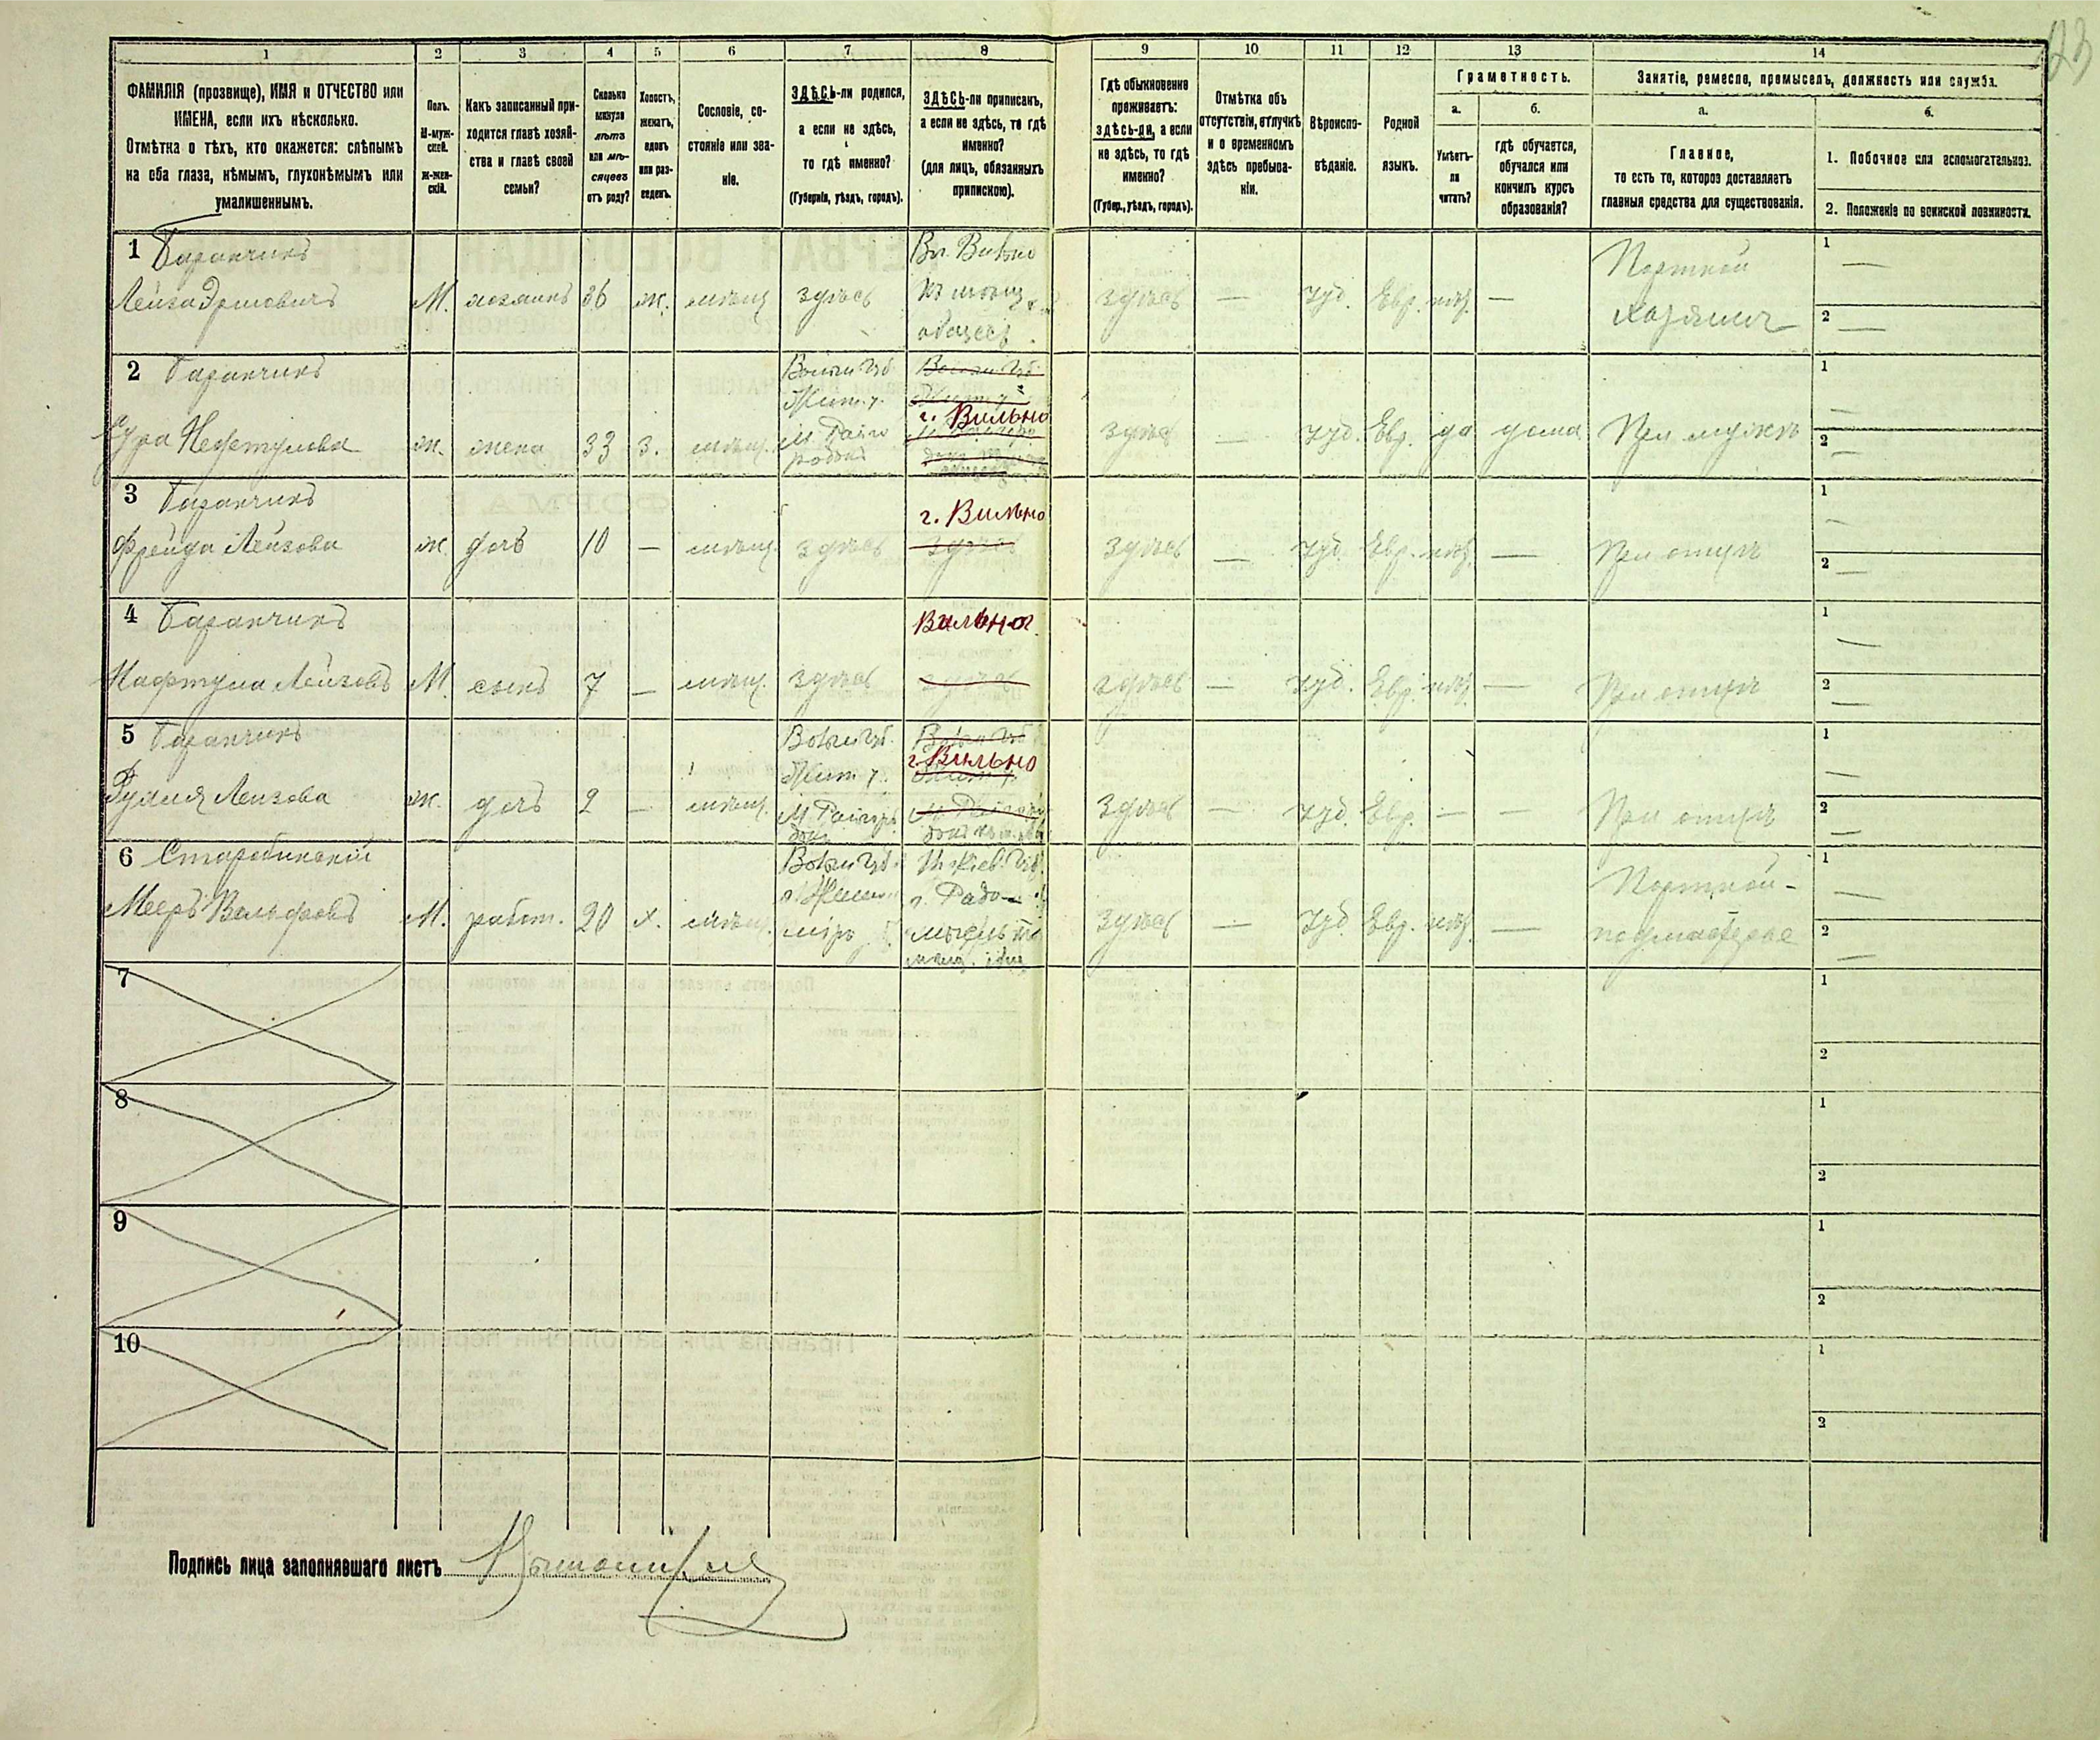 1
2
3
4
5
6
7
8
9
10
11
12
13
14
ФАМИЛІЯ (прозвище), ИМЯ и ОТЧЕСТВО или
ИМЕНА, если ихъ нѣсколько.
Отмѣтка о тѣхъ, кто окажется: слѣпымъ
на оба глаза, нѣмымъ, глухонѣмымъ или
умалишеннымъ.
Полъ.
М-муж-
ской.
Ж-жен-
скій.
Какъ записанный при-
ходится главѣ хозяй-
ства и главѣ своей
семьи?
Сколько
минуло
лѣтъ
или мѣ-
сяцевъ
отъ роду?
Холостъ,
женатъ,
вдовъ
или раз-
веденъ.
Сословіе, со-
стояніе или зва-
ніе.
ЗДѢСЬ-ли родился,
а если не здѣсь,
то гдѣ именно?
(Губернія, уѣздъ, городъ).
ЗДѢСЬ-ли приписанъ,
а если не здѣсь, то гдѣ
именно?
(для лицъ, обязанныхъ
припискою).
Гдѣ обыкновенно
проживаетъ:
здѣсь-ли, а если
не здѣсь, то гдѣ
именно?
(Губер., уѣздъ, городъ).
Отмѣтка объ
отсутствіи, отлучкѣ
и о временномъ
здѣсь пребыва-
ніи.
Вѣроиспо-
вѣданіе.
Родной
языкъ.
Грамотность.
а.
б.
Умѣетъ-
ли
читать?
гдѣ обучается,
обучался или
кончилъ курсъ
образованія?
Занятіе, ремесло, промыселъ, должность или служба.
а.
б.
Главное,
то есть то, которое доставляетъ
главныя средства для существованія.
1. Побочное или вспомогательное.
2. Положеніе по воинской повинности.
1 Баранчикъ
Лейза М. хозяинъ 36 ж. мѣщ. здѣсь
Вильно
здѣсь — Іуд. Евр. нѣт. —
Портной
хозяинъ
1 —
2 —
2 Баранчикъ
Сура Нафтулова ж. жена 33 з. мѣщ.
Волын Губ.
Жит. у.
г. Вильно
здѣсь — Іуд. Евр. да дома При мужѣ
1 —
2 —
3 Баранчикъ
Фрейда Лейзова ж. дочь 10 — мѣщ. здѣсь
г. Вильно
здѣсь
здѣсь — Іуд. Евр. нѣт. — При отцѣ
1 —
2 —
4 Баранчикъ
Нафтула Лейзовъ М. сынъ 7 — мѣщ. здѣсь
Вильно
здѣсь
здѣсь — Іуд. Евр. нѣт. — При отцѣ
1 —
2 —
5 Баранчикъ
Лейзова ж. дочь 2 — мѣщ.
Волын Губ.
Жит у.
г. Вильно
здѣсь — Іуд. Евр. — — При отцѣ
1 —
2 —
6 Старобинскій
Мееръ Вольфовъ М. работ. 20 х. мѣщ.
Волын Губ.
Кіев. Губ.
г. Радо-
мысль
здѣсь — Іуд. Евр. нѣт. —
Портной-
подмастерье
1 —
2 —
7
1
2
8
1
2
9
1
2
10
1
2
Подпись лица заполнявшаго листъ